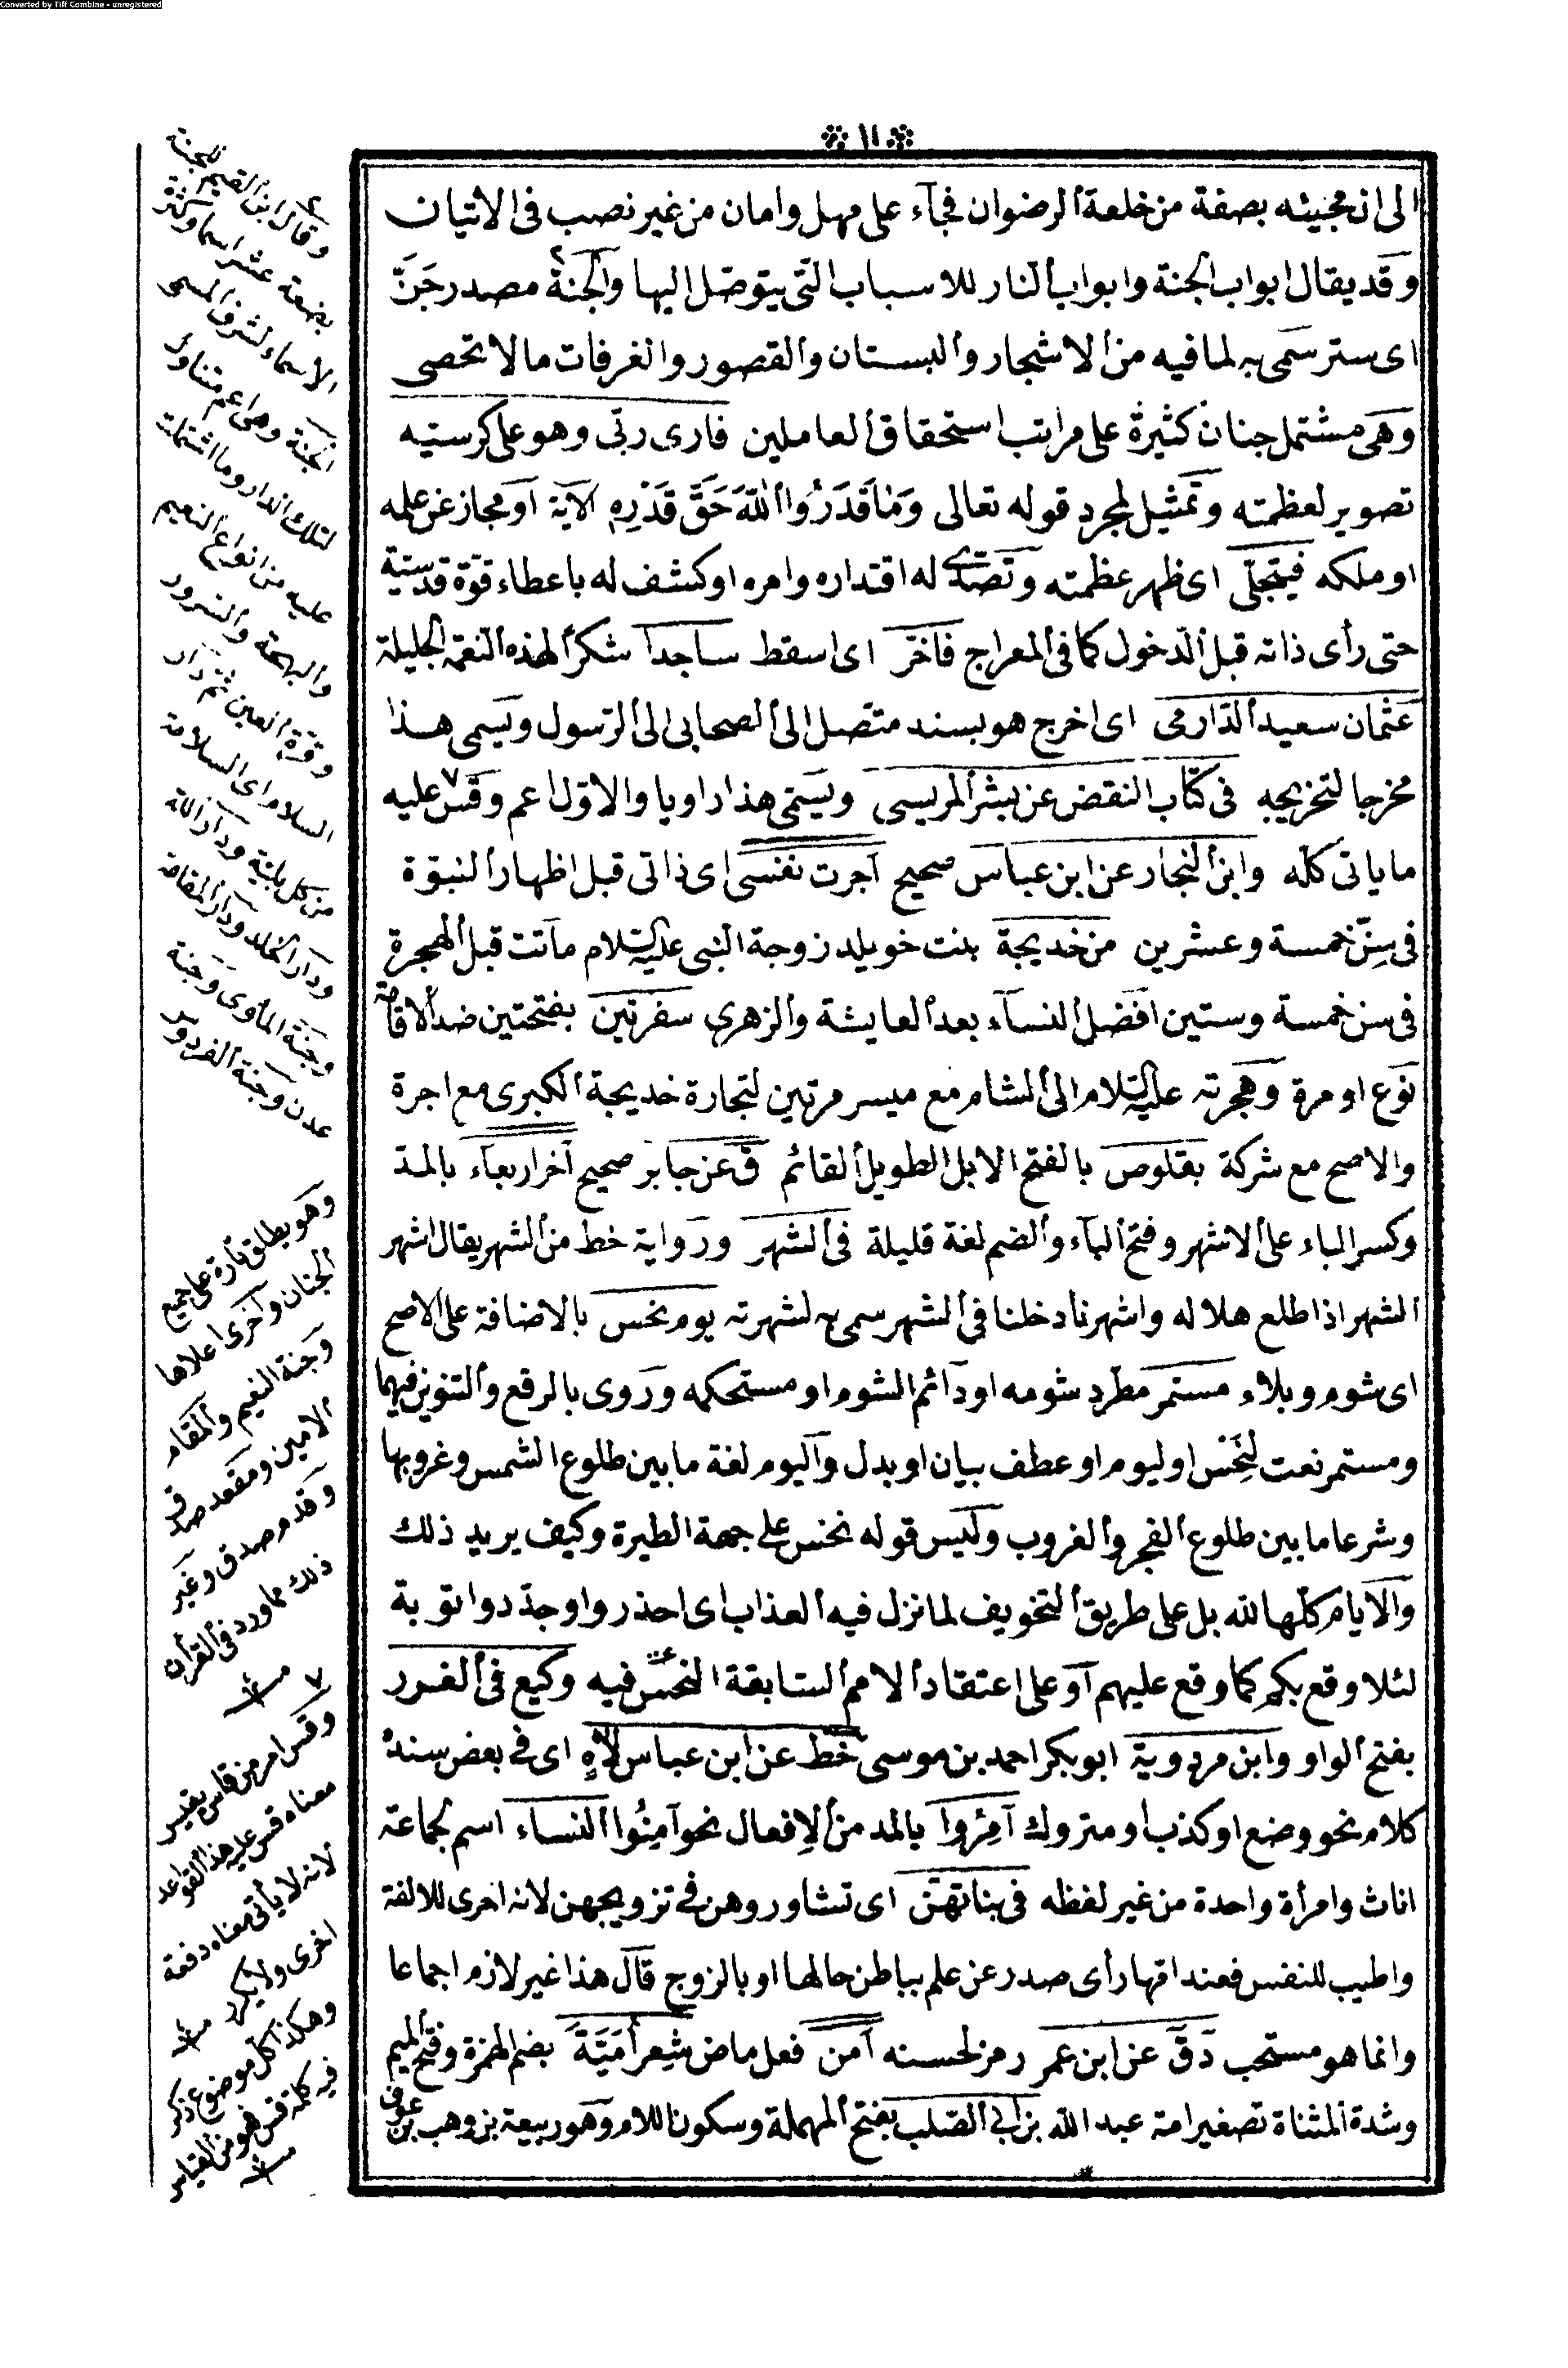 Converted by Tiff Combine - unregistered
١١
الى ان مجيئه بصفة من خلعة الرضوان فجآء على مهل وامان من غير نصب فى الاتيان
وقد يقال ابواب الجنة وابواب النار للاسباب التى يتوصل اليها والجنة ٢ مصدر جَنَّ
اى ستر سمى به لما فيه من الاشجار والبستان والقصور والغرفات مالا تحصى
وهى مشتمل جنان كثيرة على مراتب استحقاق العاملين فارى ربّى وهو على كرسيّه
تصوير لعظمته وتمثيل لمجرد قوله تعالى وَمَا قَدَرُوا اللّٰهَ حَقَّ قَدْرِهِ الآية او مجاز عن علمه
او ملكه فيتجلّى اى ظهر عظمته وتصدّى له اقتداره وامره او كشف له باعطاء قوّة قدسيّة
حتى رأى ذاته قبل الدّخول كما فى المعراج فاخرّ اى اسقط ساجداً شكراً لهذه النعمة الجليلة
عثمان سعيد الدّارمى اى اخرج هو بسند متّصل الى الصحابى الى الرّسول ويسمى هذا
مخرجا لتخريجه فى كتاب النقض عن بشر المريسى ويسمّى هذا راويا والاوّل اعم وقس ٧ عليه
ما ياتى كلّه وابن النجار عن ابن عباس صحيح آجرت نفسى اى ذاتى قبل اظهار النبوّة
فى سنّ خمسة وعشرين من خديجة بنت خويلد زوجة النبى عليه السّلام ماتت قبل الهجرة
فى سن خمسة وستين افضل النسآء بعد العايشة والزهرى سفرتين بفتحتين ضد الاقامة
نوع او مرة وهجرته عليه السّلام الى الشام مع ميسر مرتين لتجارة خديجة الكبرى مع اجرة
والاصح مع شركة بقلوص بالفتح الابل الطويل القائم ق عن جابر صحيح آخر اربعآء بالمدّ
وكسر الباء على الاشهر وفتح البآء والضم لغة قليلة فى الشهر ورواية خط من الشهر يقال اشهر
الشهر اذا طلع هلاله واشهرنا دخلنا فى الشهر سمى به لشهرته يوم نحس بالاضافة على الاصح
اى شوم وبلاء مستمر مطّرد شومه او دآئم الشوم او مستحكمه وروى بالرفع والتنوين فيهما
ومستمر نعت لنحْس او ليوم او عطف بيان او بدل واليوم لغة ما بين طلوع الشمس وغروبها
وشرعا ما بين طلوع الفجر والغروب وليس قوله نحس على جهة الطيرة وكيف يريد ذلك
والايام كلّها لله بل على طريق التخويف لما نزل فيه العذاب اى احذروا وجدّدوا توبة
لئلا وقع بكم كما وقع عليهم او على اعتقاد الامم السّابقة النحس فيه وكيع فى الغرر
بفتح الواو وابن مردوية ابو بكر احمد بن موسى خط عن ابن عباس لاهٍ اى فى بعض سنده
كلام نحو وضع او كذب او متروك آمِرُوا بالمد من الاِفعال نحو آمِنُوا النساء اسم لجماعة
اناث وامرأة واحدة من غير لفظه فى بناتهنّ اى تشاوروهن فى تزويجهن لانه احرى للالفة
واطيب للنفس فعند اقهار رأى صدر عن علم بباطن حالها او بالزوج قال هذا غير لازم اجماعا
وانما هو مستحب دَقّ عن ابن عمر رمز لحسنه آمن فعل ماض شِعر اُمَيَّةَ بضم الهمزة وفتح الميم
وشدة المثناة تصغير امة عبد الله بن ابى الصّلب بفتح المهملة وسكون اللام وهو ربيعة بن وهب بن عوف
٢
وقال ابن القيم للجنة
بضعة عشر اسما وكثرة
الاسماء لشرف المسمى
الجنّة وهى اعم متناول
لتلك الدار وما اشتملت
عليه من انواع النعيم
والبهجة والسّرور
وقرة العين ثمّ دار
السلام اى السلامة
من كل بلية ودار الله
ودار الخلد ودار المقامة
وجنّة المأوى وجنة
عدن وجنة الفردوس
وهو يطلق تارة على جميع
الجنان واخرى اعلاها
وجنة النعيم والمقام
الامين ومقعد صدق
وقدم صدق وغير
ذلك مما ورد فى القرأن
٧
وقس امر من قاس يقيس
معناه قس عليه هذا القواعد
لانه لا يأتى معناه دفعة
اخرى ولا يكرد
وهكذا كل موضوع ذكر
فيه كلمة قس فهو من القياس